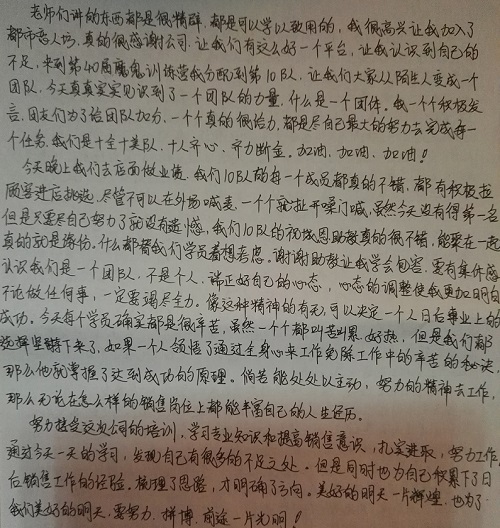 老师们讲的东西都是很精辟，都是可以学以致用的，我很高兴让我加入了
都市恋人坊，真的很感谢公司，让我们有这么好一个平台，让我认识到自己的
不足，来到第40届魔鬼训练营我分配到第10队，让我们大家从陌生人变成一个
团队，今天真真实实见识到了一个团队的力量，什么是一个团体。我一个个积极发
言，团友们为了给团队加分，一个个真的很给力，都是尽自己最大的努力去完成每一
个任务，我们是十全十美队，十人齐心，齐力断金。加油，加油，加油！
今天晚上我们去店面做业绩，我们10队的每一个成员都真的不错，都有积极拉
顾客进店挑选，尽管不可以在外场喊麦，一个个就扯开嗓门喊，虽然今天没有得第一名
但是只要尽自己努力了就没有遗憾，我们10队的祝城恩助教真的很不错，能聚在一起
真的就是缘份，什么都替我们学员着想考虑。谢谢助教让我学会包容，要有集体感
认识我们是一个团队，不是个人，端正好自己的心态，心态的调整使我更加明白
不论做任何事，一定要竭尽全力。像这种精神的有无，可以决定一个人日后事业上的
成功。今天每个学员确实都是很辛苦，虽然一个个都叫苦叫累，好热，但是我们都
选择坚持下来了，如果一个人领悟了通过全身心来工作免除工作中的辛苦的秘诀，
那么他就掌握了达到成功的原理。倘若能处处以主动，努力的精神去工作，
那么无论在怎么样的销售岗位上都能丰富自己的人生经历。
努力接定这次间的培训，学习专业知识和提高销售意识，扎实进取，努力工作，
通过今天一天的学习，发现自己有很多的不足之处。但是同时也为自己积累下了日
后销售工作的经验，梳理了思路，才明确了方向。美好的明天一片辉煌，也为了
我们美好的明天，要努力，拼搏，前途一片光明！